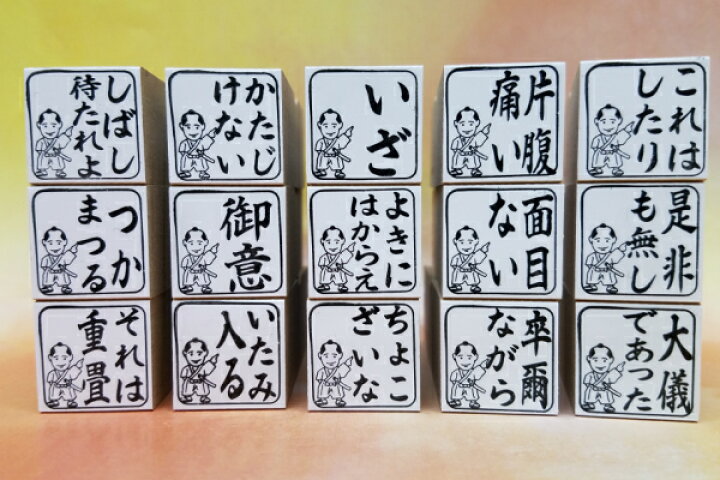 しばし
待たれよ
かたじ
けない
いざ
片腹
痛い
これは
したり
つか
まつる
御意
よきに
はからえ
面目
ない
是非
も無し
それは
重畳
いたみ
入る
ちょこ
ざいな
卒爾
ながら
大儀
であった